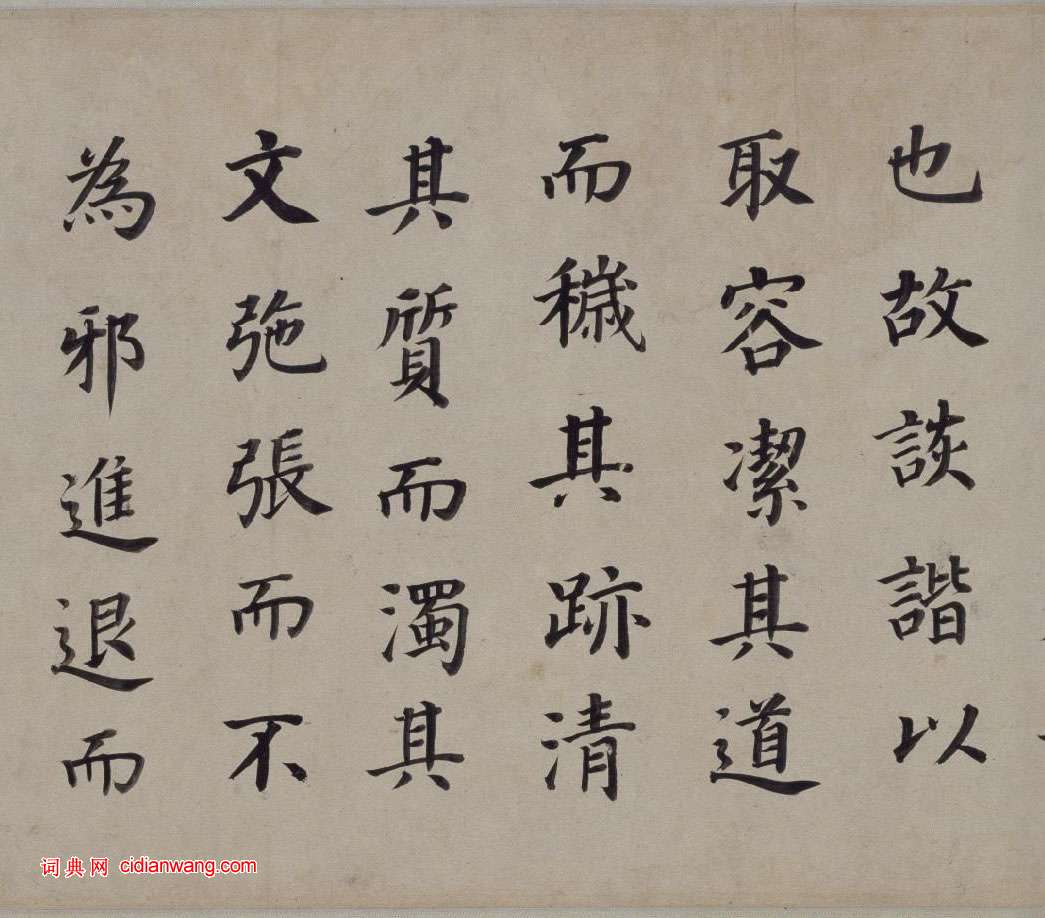 也故談諧以
取容潔其道
而穢其跡清
其質而濁其
文弛張而不
為邪進退而
词典网 cidianwang.com